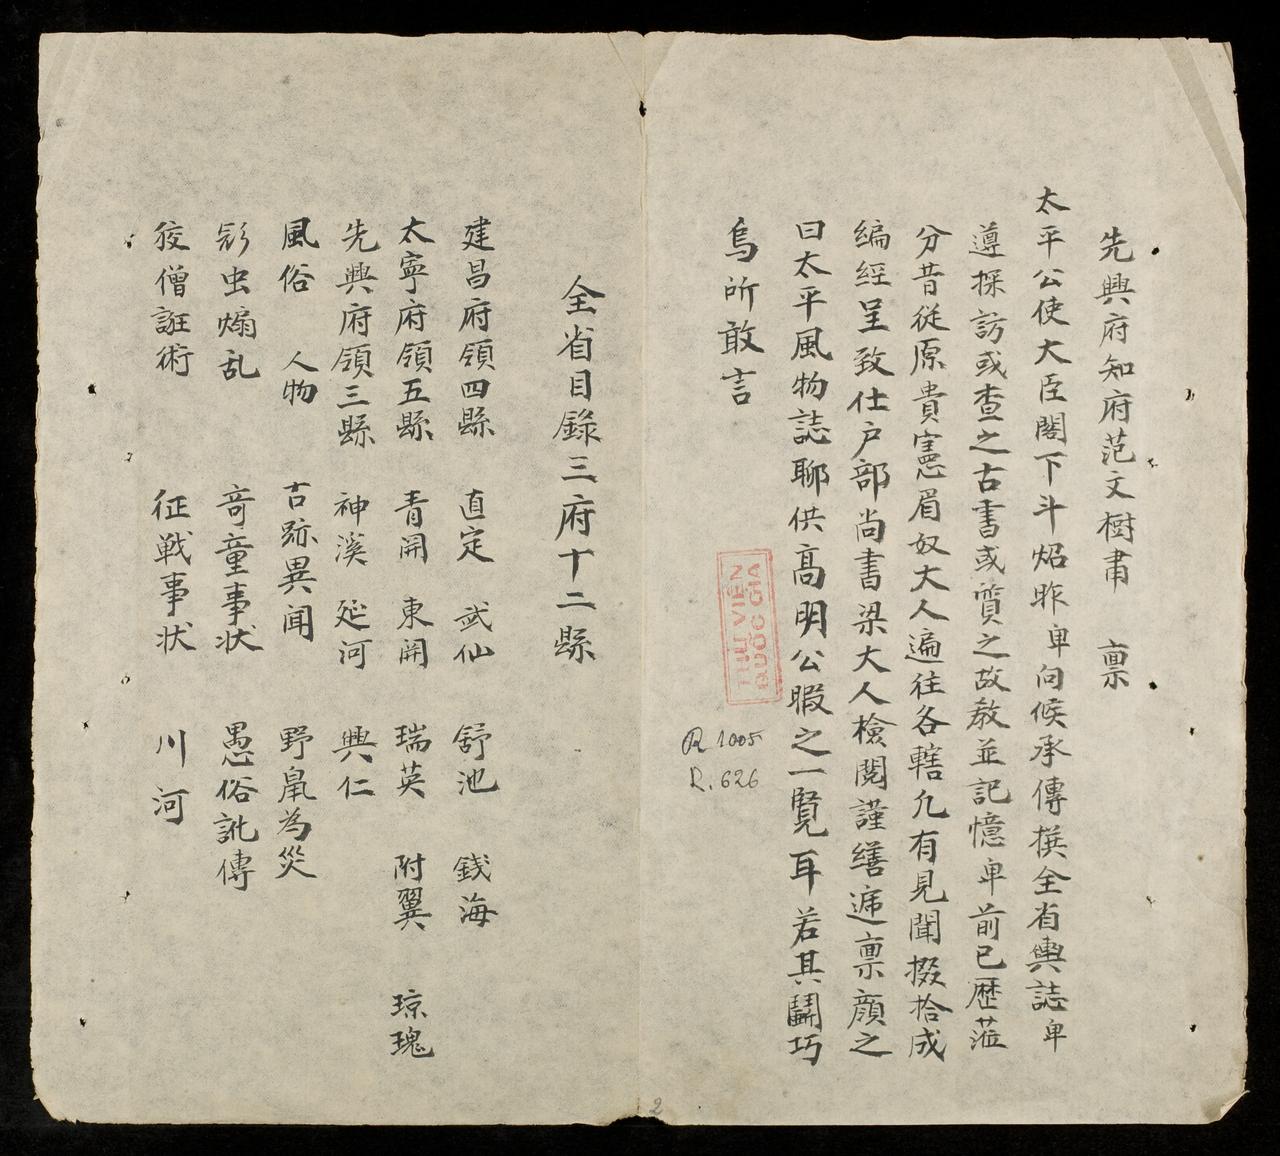 先興府知府范文樹肅 禀
太平公使大臣閣下斗炤昨卑向候承傳撰全省輿誌卑
遵採訪或查之古書或質之故教並記憶卑前已歷蒞
分昔從原貴憲眉奴大人遍往各轄凢有見聞掇拾成
編經呈致仕户部尚書梁大人檢閱謹繕遞禀顔之
曰太平風物誌聊供高明公暇之一覽耳若其鬭巧
烏所敢言
THƯ VIỆN
QUỐC GIA
R 1005
R. 626
全省目錄三府十二縣
建昌府領四縣 直定 武仙 舒池 錢海
太寧府領五縣 青関 東関 瑞英 附翼 琼瑰
先興府領三縣 神溪 延河 興仁
風俗 人物 古跡異聞 野鼠為災
虫煽乱 竒童事状 愚俗訛傳
狡僧誑術 征戦事状 川河
2